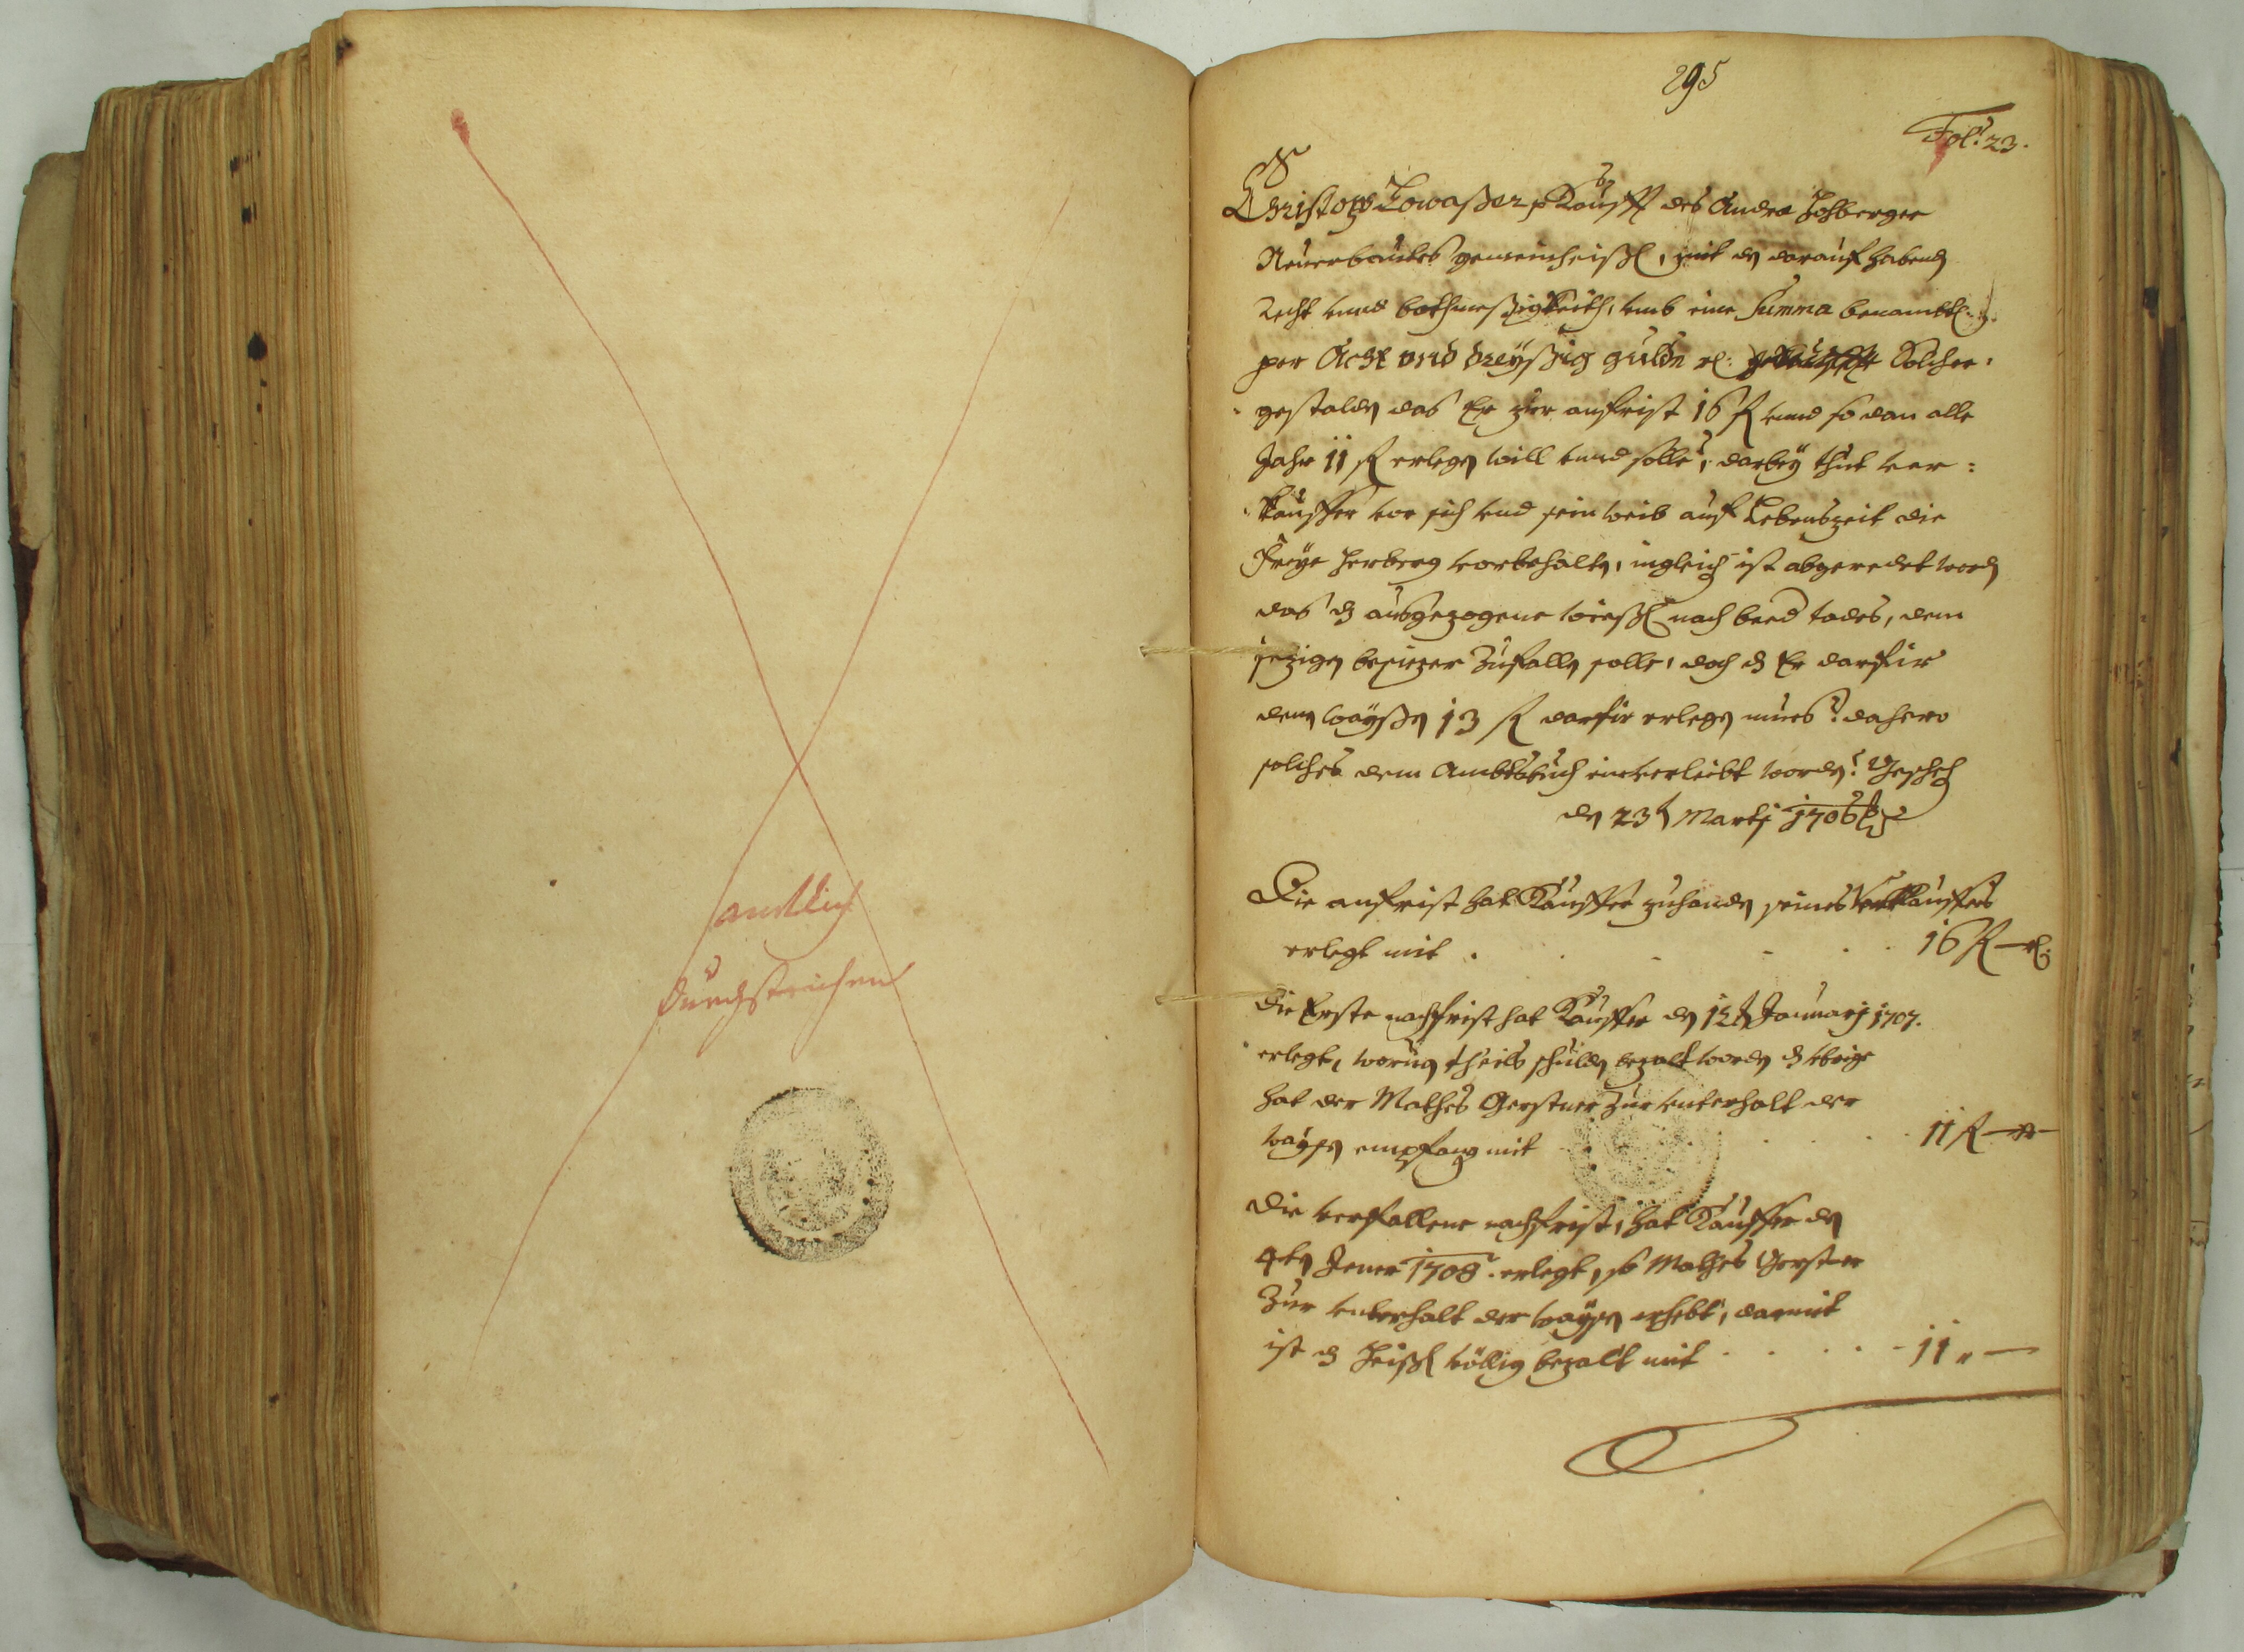 amtlich
durchstrichen
295
Fol: 23.
Christoph Lowasser Kaufft des Andre Hohberger
Neuerbautes gemeinheißl, mit dn darauf habendn
Recht vnd bothmeßigkeith, vmb eine Summa benambtl:
per Acht vnd dreÿssig guldn rl: Solcher-
gestaldn das Er zur anfrist 16 fl vnd so dan alle
Jahr 11 fl erlegn will vnd solle, darbeÿ thut ver:
kauffer vor sich vnd sein weib auf Lebenszeit die
Freÿe Herberg vorbehaltn, ingleich ist abgeredet wordn
das dz ausgezogene wießl nach beed todes, dem
jezigen besizer Zufalln solle, doch dz Er darfür
denn waÿßn 13 fl darfür erlegn mues: dahero
solches dem Ambtsbuch einverleibt wordn: Geschehn
dn 23tn Martj 1706
Die anfrist hat Kauffer zuhandn seines Verkauffers
erlegt mit . . . . 16 fl — rl:
die Erste nachfrist hat Kauffer dn 12tn Januarj 1707.
erlegt, worun theils schuldn bezalt wordn dz vbrige
hat der Mathes Gerstner Zur vnterhalt der
waÿsn empfang mit . . . . 11 fl —
Die verfallene nachfrist, hat Kauffer dn
4tn Jener 1708. erlegt, so Mathes Gerstner
Zur vnterhalt der waÿsn erhebt, darmit
ist dz Heißl völlig bezalt mit . . . . 11 " —